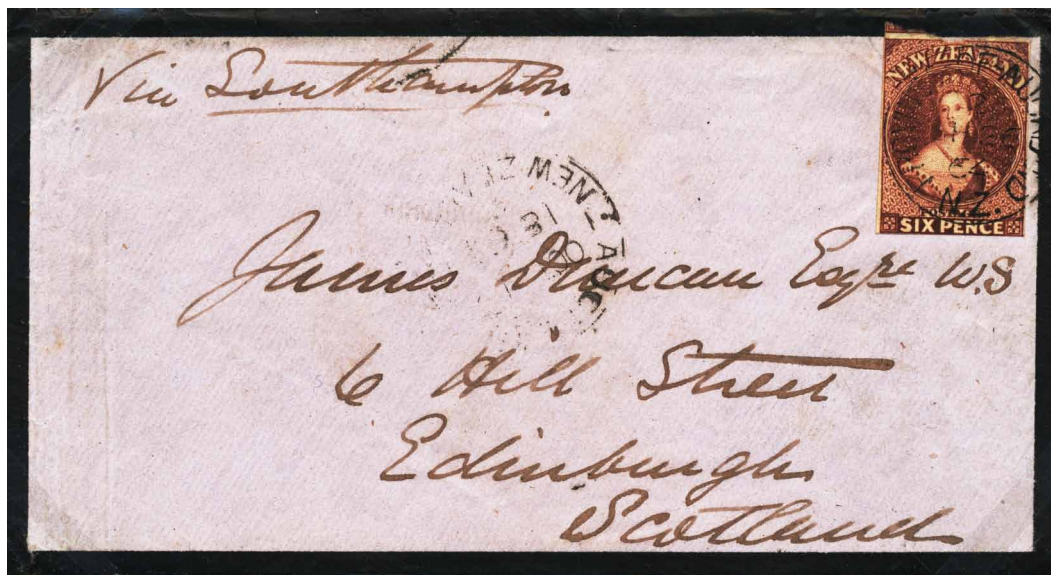 Via Southampton
NEW ZEALAND
POSTAGE
SIX PENCE
N.Z.
NEW Z
James Duncan Esqre W.S
6 Hill Street
Edinburgh
Scotland